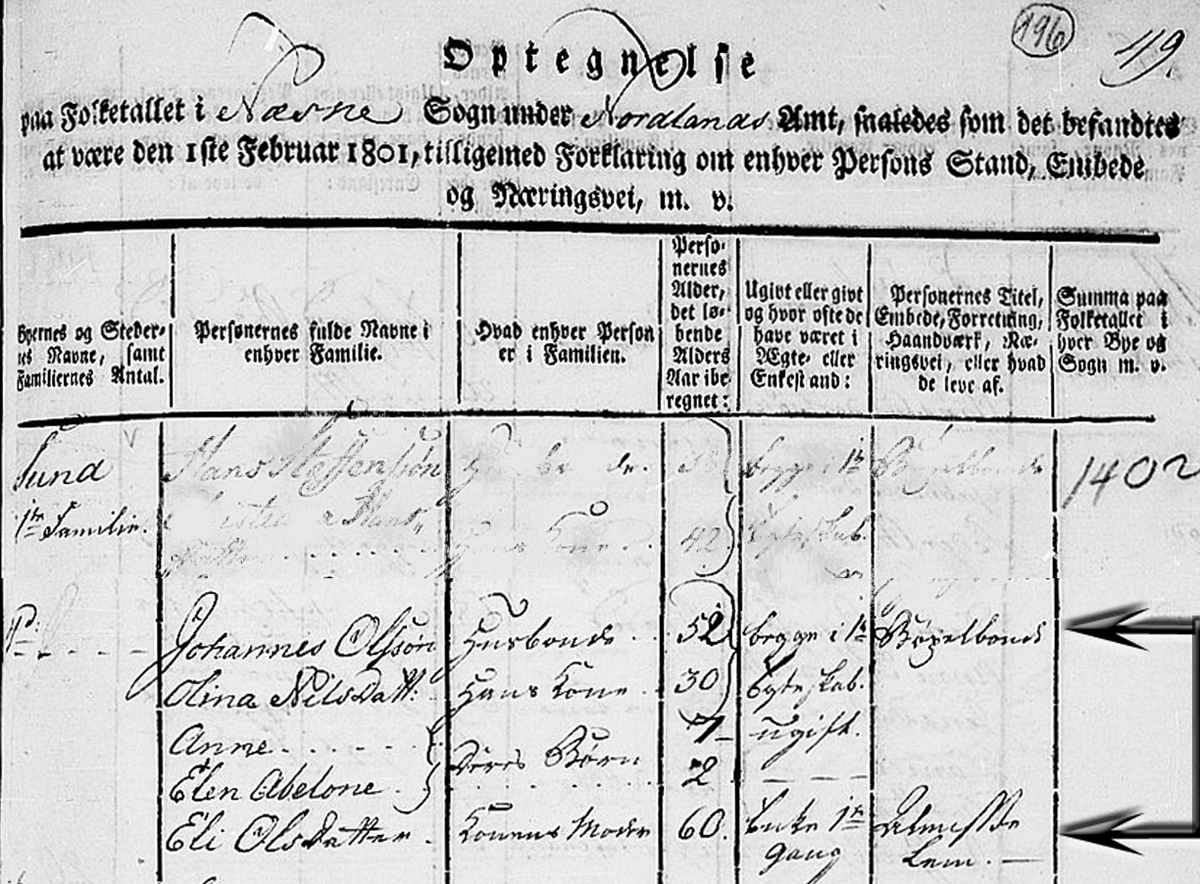 196
49.
Optegnelse
paa Folketallet i Næsne Sogn under Nordlands Amt, saaledes som det befandtes
at være den 1ste Februar 1801, tilligemed Forklaring om enhver Persons Stand, Embede
og Næringsvei, m. v.
Byernes og Steder-
nes Navne, samt
Familiernes Antal.
Personernes fulde Navne i
enhver Familie.
Hvad enhver Person
er i Familien.
Perso-
nernes
Alder,
det lø-
bende
Alders
Aar ibe-
regnet:
Ugivt eller givt
og hvor ofte de
have været i
Ægte- eller
Enkestand:
Personernes Titel,
Embede, Forretning,
Haandværk, Næ-
ringsvei, eller hvad
de leve af.
Summa paa
Folketallet i
hver Bye og
Sogn m. v.
Sund Hans Steffensøn begge i 1te 1402
1te Familie. Hans
42 Egteskab.
Johannes Olssøn Husbonde 52 begge i 1te Bøxelbonde
Olina Nilsdatt: Hans Kone 30 Egteskab.
Anne 7 ugift.
Deres Børn
Elen Abelone 2
Eli Olsdatter Konens Moder 60. Enke 1te Almisse
Gang Lem.